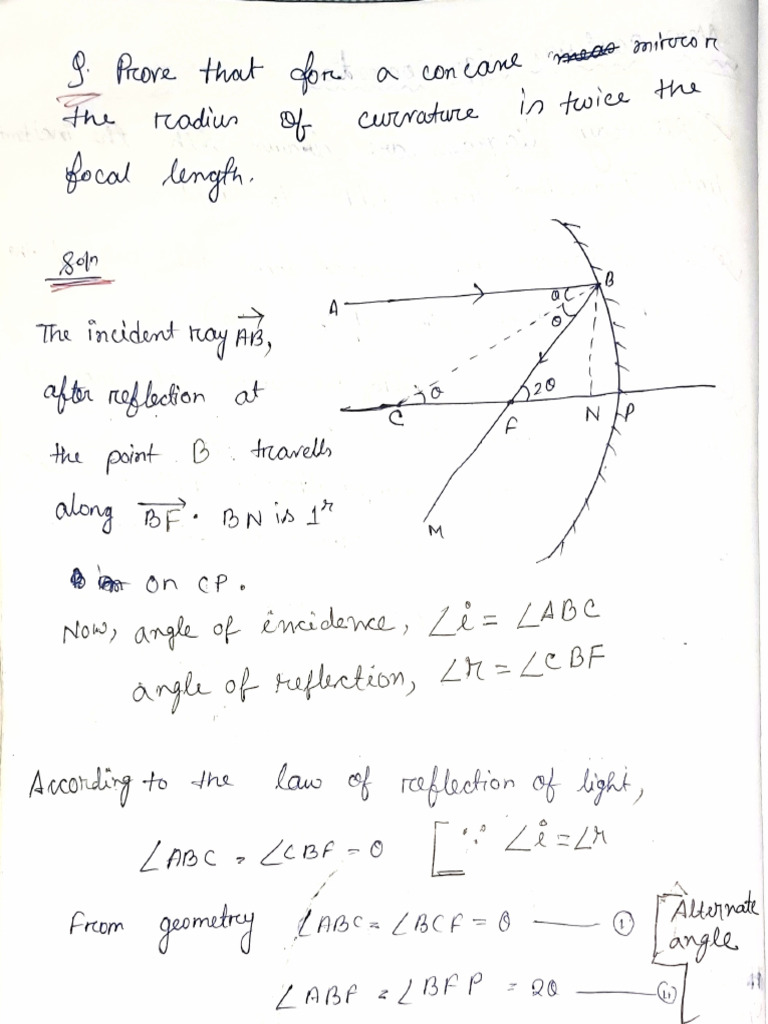 Q. Prove that for a concave mirror
the radius of curvature is twice the
focal length.
Soln
A
B
θ
θ
θ
2θ
C
F
N
P
M
The incident ray AB,
after reflection at
the point B travells
along BF. BN is 1r
on CP.
Now, angle of incidence, ∠i = ∠ABC
angle of reflection, ∠r = ∠CBF
According to the law of reflection of light,
∠ABC = ∠CBF = θ [∵ ∠i = ∠r
From geometry ∠ABC = ∠BCF = θ — (i) [Alternate
angle
∠ABF = ∠BFP = 2θ — (ii) [